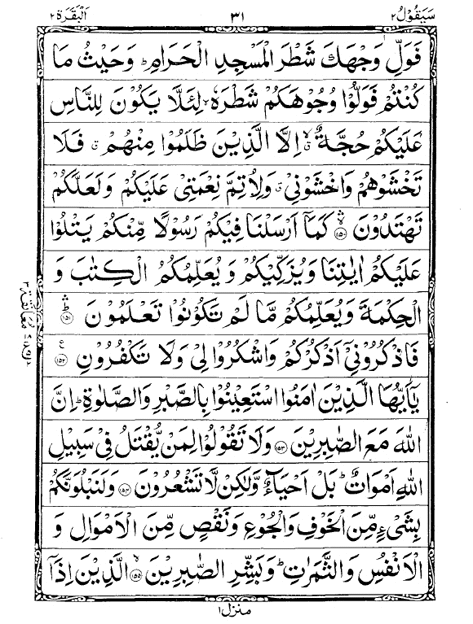 سَيَقُوْلُ ٢ ٣١ اَلْبَقَرَة ٢
فَوَلِّ وَجْهَكَ شَطْرَ الْمَسْجِدِ الْحَرَامِ ؕ وَحَيْثُ مَا
كُنْتُمْ فَوَلُّوْا وُجُوْهَكُمْ شَطْرَهٗ ۙ لِئَلَّا يَكُوْنَ لِلنَّاسِ
عَلَيْكُمْ حُجَّةٌ ۙ اِلَّا الَّذِيْنَ ظَلَمُوْا مِنْهُمْ ۗ فَلَا
تَخْشَوْهُمْ وَاخْشَوْنِيْ ۗ وَلِاُتِمَّ نِعْمَتِيْ عَلَيْكُمْ وَلَعَلَّكُمْ
تَهْتَدُوْنَ ۙ‏﴿۱۵۰﴾ كَمَآ اَرْسَلْنَا فِيْكُمْ رَسُوْلًا مِّنْكُمْ يَتْلُوْا
عَلَيْكُمْ اٰيٰتِنَا وَيُزَكِّيْكُمْ وَيُعَلِّمُكُمُ الْكِتٰبَ وَ
الْحِكْمَةَ وَيُعَلِّمُكُمْ مَّا لَمْ تَكُوْنُوْا تَعْلَمُوْنَ ؕ‏﴿۱۵۱﴾
فَاذْكُرُوْنِيْٓ اَذْكُرْكُمْ وَاشْكُرُوْا لِيْ وَلَا تَكْفُرُوْنِ ‏﴿۱۵۲﴾
يٰٓاَيُّهَا الَّذِيْنَ اٰمَنُوا اسْتَعِيْنُوْا بِالصَّبْرِ وَالصَّلٰوةِ ؕ اِنَّ
اللّٰهَ مَعَ الصّٰبِرِيْنَ ‏﴿۱۵۳﴾ وَلَا تَقُوْلُوْا لِمَنْ يُّقْتَلُ فِيْ سَبِيْلِ
اللّٰهِ اَمْوَاتٌ ؕ بَلْ اَحْيَآءٌ وَّلٰكِنْ لَّا تَشْعُرُوْنَ ‏﴿۱۵۴﴾ وَلَنَبْلُوَنَّكُمْ
بِشَيْءٍ مِّنَ الْخَوْفِ وَالْجُوْعِ وَنَقْصٍ مِّنَ الْاَمْوَالِ وَ
الْاَنْفُسِ وَالثَّمَرٰتِ ؕ وَبَشِّرِ الصّٰبِرِيْنَ ۙ‏﴿۱۵۵﴾ الَّذِيْنَ اِذَآ
منزل ۱